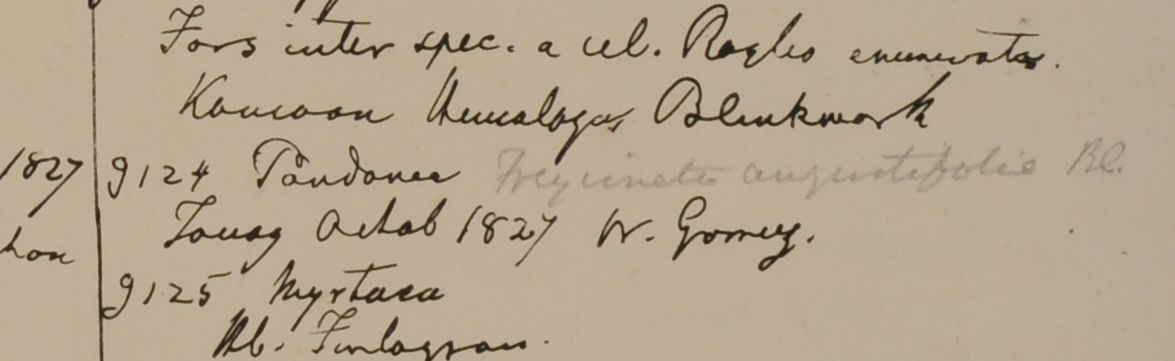 Fors inter spec. a cel. Royleo enumeratas.
Kamaon Himalayas Blinkwork
1827 9124 Pandanea Freycinetia angustifolia Bl.
Tavoy Octob 1827 W. Gomez.
9125 Myrtacea
Hb. Finlayson.